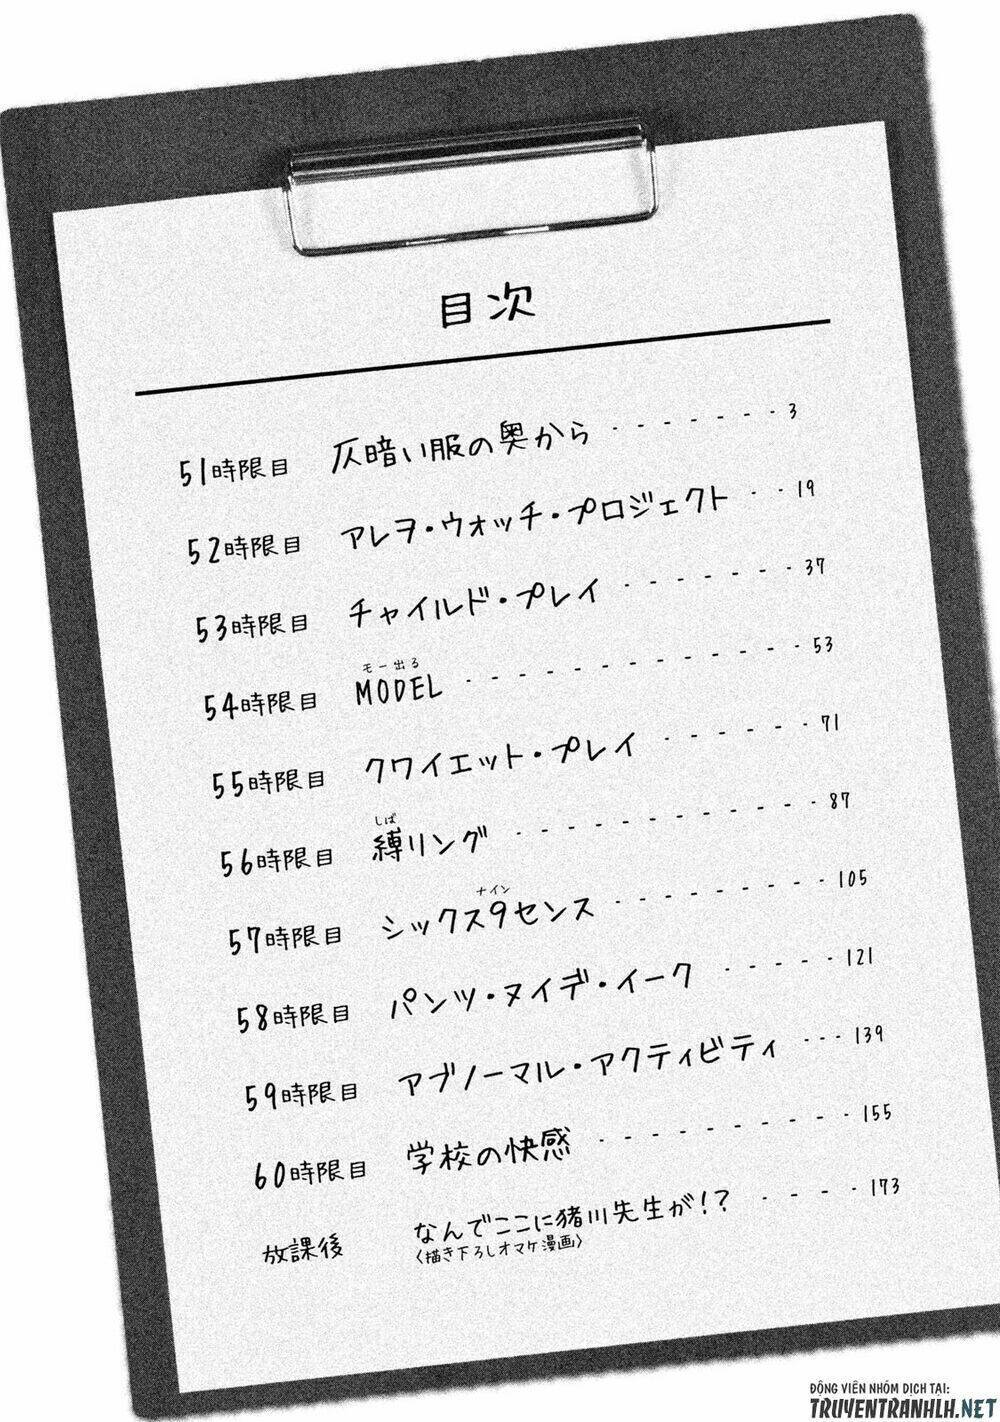 目次
51時限目 仄暗い服の奥から ・・・・・・・ 3
52時限目 アレヲ・ウォッチ・プロジェクト ・・ 19
53時限目 チャイルド・プレイ ・・・・・・・ 37
モー出る
54時限目 MODEL ・・・・・・・・・・・・ 53
55時限目 クワイエット・プレイ ・・・・・・ 71
しば
56時限目 縛リング ・・・・・・・・・・・ 87
ナイン
57時限目 シックス9センス ・・・・・・・・ 105
58時限目 パンツ・ヌイデ・イーク ・・・・・ 121
59時限目 アブノーマル・アクティビティ ・・・ 139
60時限目 学校の快感 ・・・・・・・・・ 155
放課後 なんでここに猪川先生が!? ・・・・ 173
〈描き下ろしオマケ漫画〉
ĐỘNG VIÊN NHÓM DỊCH TẠI:
TRUYENTRANHLH.NET